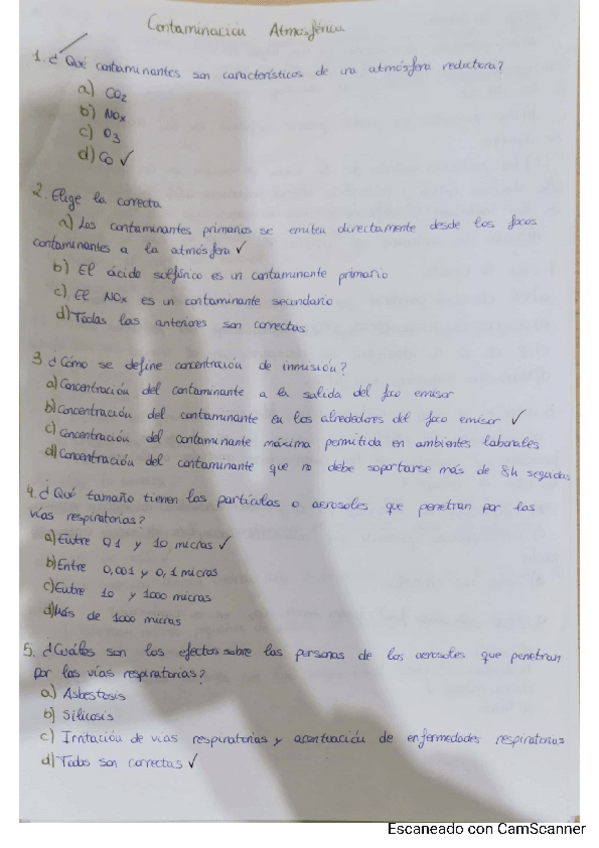 Contaminación Atmosférica
1. ¿ Qué contaminantes son característicos de una atmósfera reductora?
a) CO2
b) NOx
c) O3
d) CO ✓
2. Elige la correcta
a) Los contaminantes primarios se emiten directamente desde los focos
contaminantes a la atmósfera ✓
b) El ácido sulfúrico es un contaminante primario
c) El NOx es un contaminante secundario
d) Todas las anteriores son correctas
3. ¿Cómo se define concentración de inmisión?
a) Concentración del contaminante a la salida del foco emisor
b) Concentración del contaminante en los alrededores del foco emisor ✓
c) Concentración del contaminante máxima permitida en ambientes laborales
d) Concentración del contaminante que no debe soportarse más de 8h seguidas
4. ¿Qué tamaño tienen las partículas o aerosoles que penetran por las
vías respiratorias?
a) Entre 0,1 y 10 micras ✓
b) Entre 0,001 y 0,1 micras
c) Entre 10 y 1000 micras
d) Más de 1000 micras
5. ¿Cuáles son los efectos sobre las personas de los aerosoles que penetran
por las vías respiratorias?
a) Asbestosis
b) Silicosis
c) Irritación de vías respiratorias y acentuación de enfermedades respiratorias
d) Todas son correctas ✓
Escaneado con CamScanner